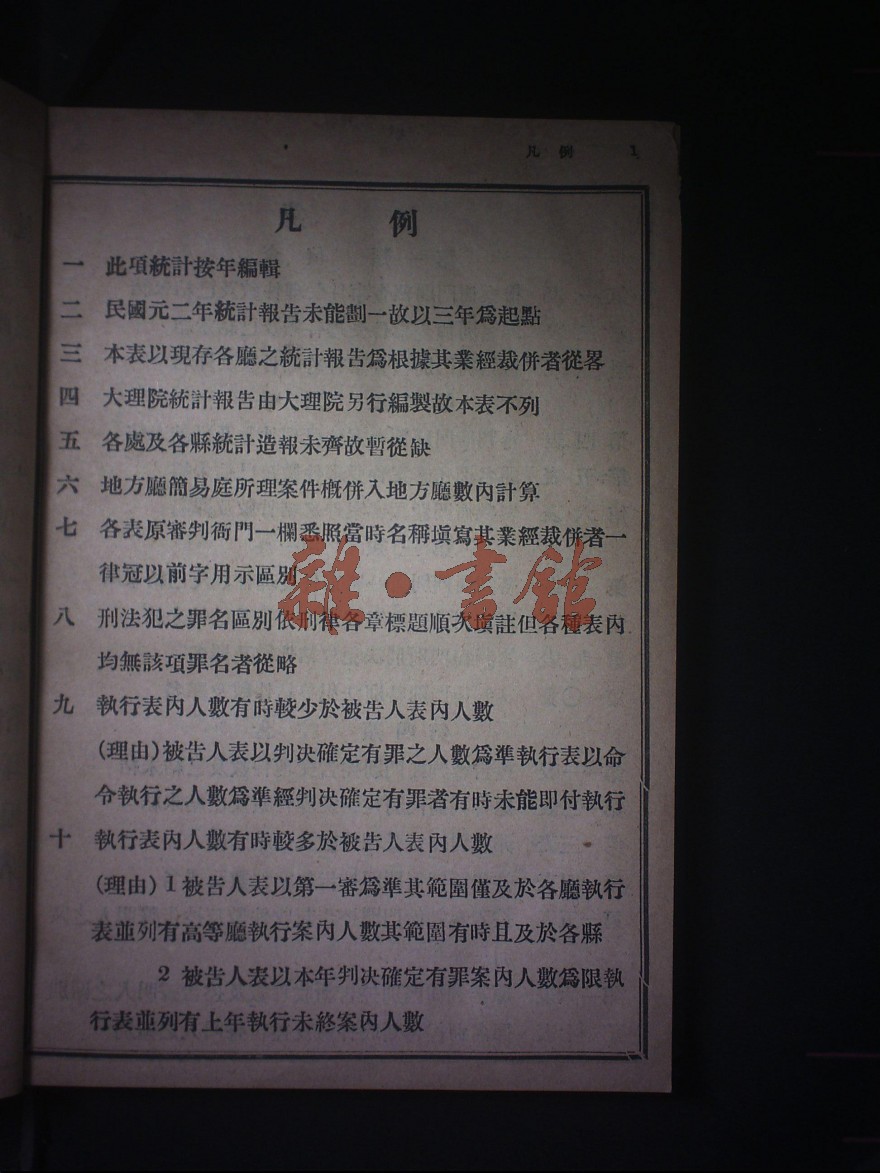 凡例 1
凡 例
一 此項統計按年編輯
二 民國元二年統計報告未能劃一故以三年爲起點
三 本表以現存各廳之統計報告爲根據其業經裁併者從畧
四 大理院統計報告由大理院另行編製故本表不列
五 各處及各縣統計造報未齊故暫從缺
六 地方廳簡易庭所理案件槪併入地方廳數內計算
七 各表原審判衙門一欄悉照當時名稱塡寫其業經裁併者一
律冠以前字用示區別
雜·書館
八 刑法犯之罪名區別依刑律各章標題順次塡註但各種表內
均無該項罪名者從略
九 執行表內人數有時較少於被告人表內人數
(理由)被告人表以判决確定有罪之人數爲準執行表以命
令執行之人數爲準經判决確定有罪者有時未能即付執行
十 執行表內人數有時較多於被告人表內人數
(理由)1被告人表以第一審爲準其範圍僅及於各廳執行
表並列有高等廳執行案內人數其範圍有時且及於各縣
2 被告人表以本年判决確定有罪案內人數爲限執
行表並列有上年執行未終案內人數